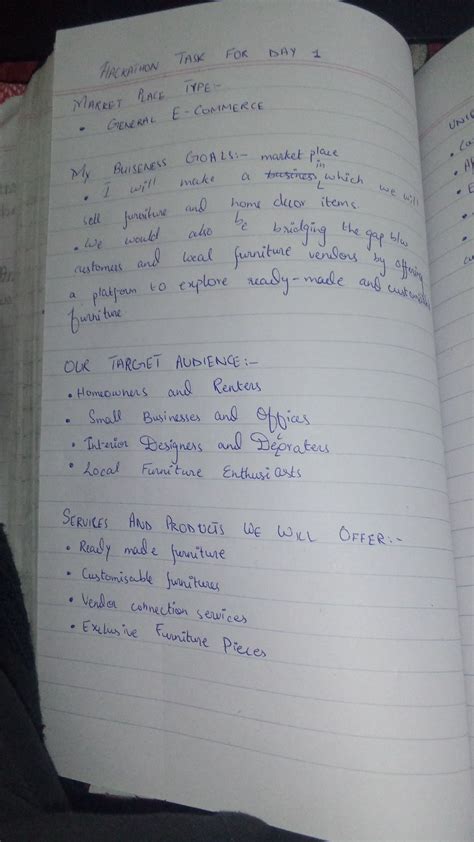 HACKATHON TASK FOR DAY 1
MARKET PLACE TYPE:-
• GENERAL E-COMMERCE
MY BUISENESS GOALS:- market place
• I will make a business in which we will
sell furniture and home decor items
• We would also be bridging the gap b/w
customers and local furniture vendors by offering
a platform to explore ready-made and
furniture
OUR TARGET AUDIENCE:-
• Homeowners and Renters
• Small Businesses and Offices
• Interior Designers and Decoraters
• Local Furniture Enthusiasts
SERVICES AND PRODUCTS WE WILL OFFER:-
• Ready made furniture
• Customisable furnitures
• Vendor connection services
• Exclusive Furniture Pieces
UNI